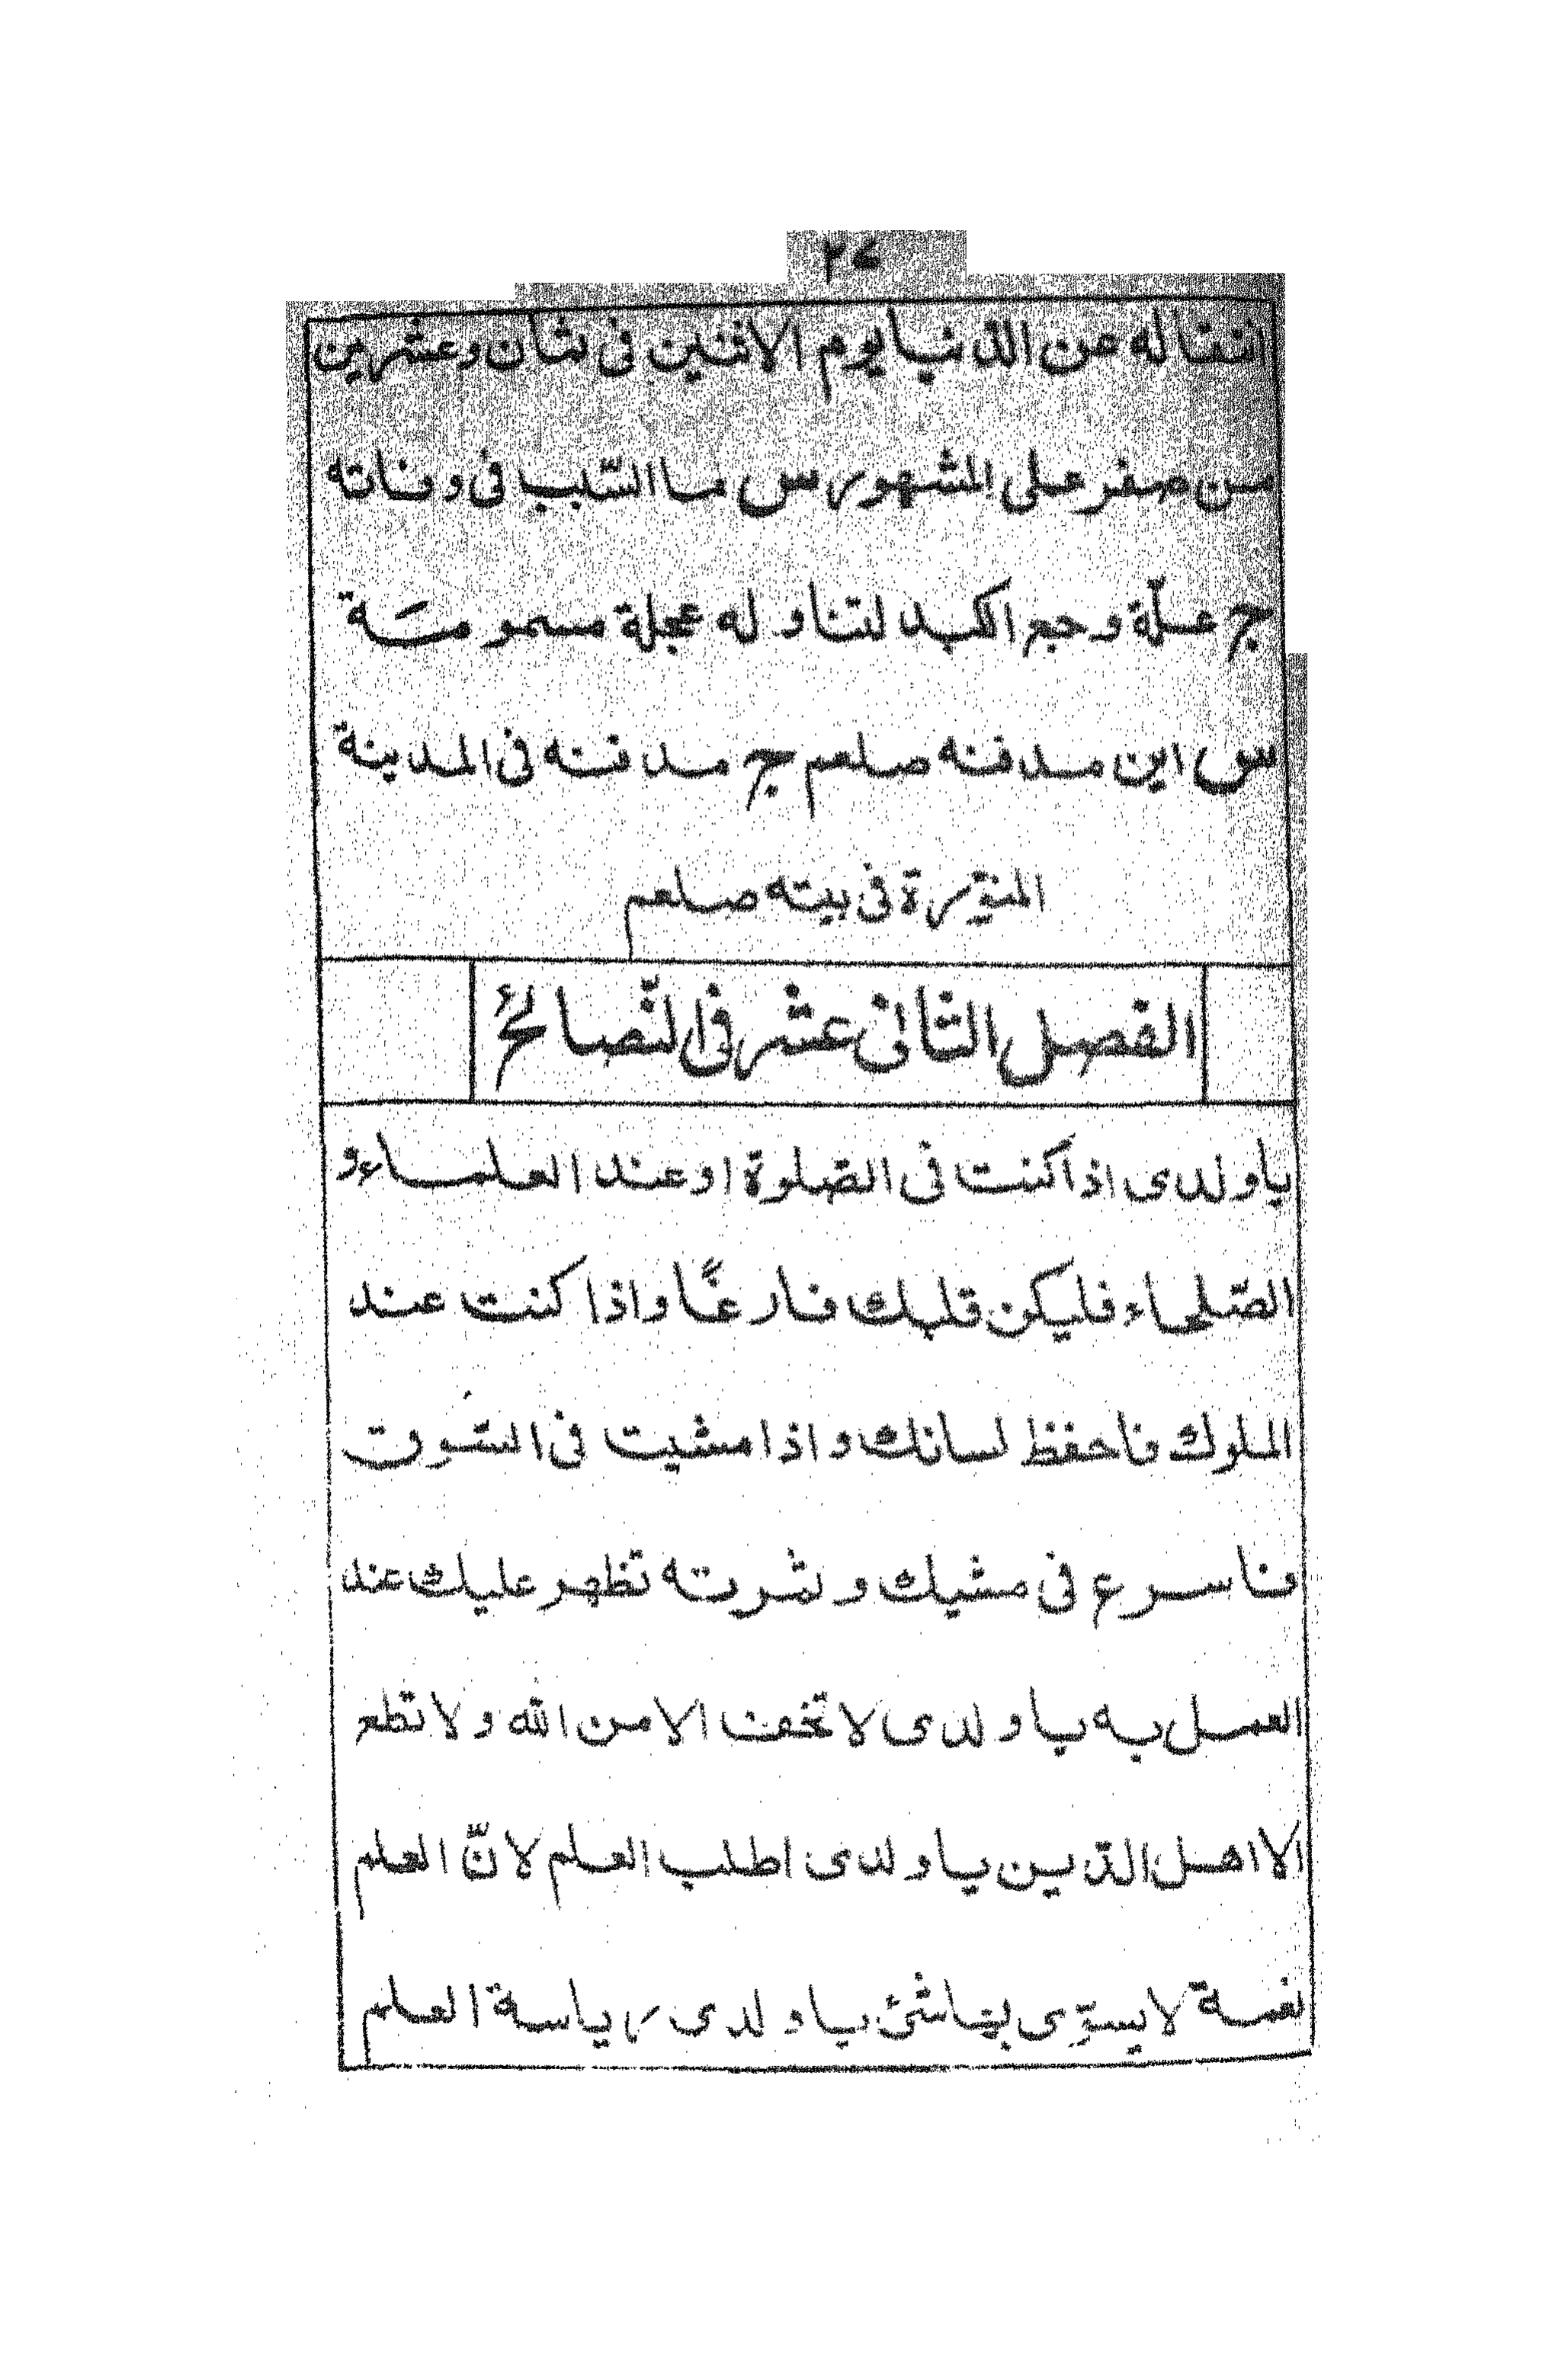 ٢٧
انتقاله عن الدّنيا يوم الاثنين فى ثمان وعشرين
من صفر على المشهور س ما السّبب فى وفاته
ج علّة وجع الكبد لتناوله عجلة مسمومَة
س اين مدفنه صلعم ج مدفنه فى المدينة
المنوّرة فى بيته صلعم
الفصل الثانى عشر فى النّصائح
ياولدى اذا كنت فى الصّلوة او عند العلماء و
الصّلحاء فليكن قلبك فارغًا واذا كنت عند
الملوك فاحفظ لسانك واذا مشيت فى السّوق
فاسرع فى مشيك و ثمرته تظهر عليك عند
العمل به ياولدى لا تخف الا من الله و لا تطع
الا اهل الدّين ياولدى اطلب العلم لانّ العلم
نعمة لا يسوّى بها شئ ياولدى رياسة العلم